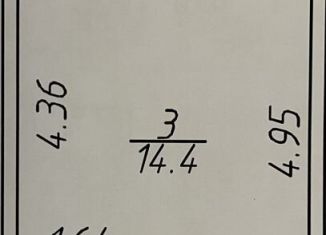 4.36
3
14.4
4.95